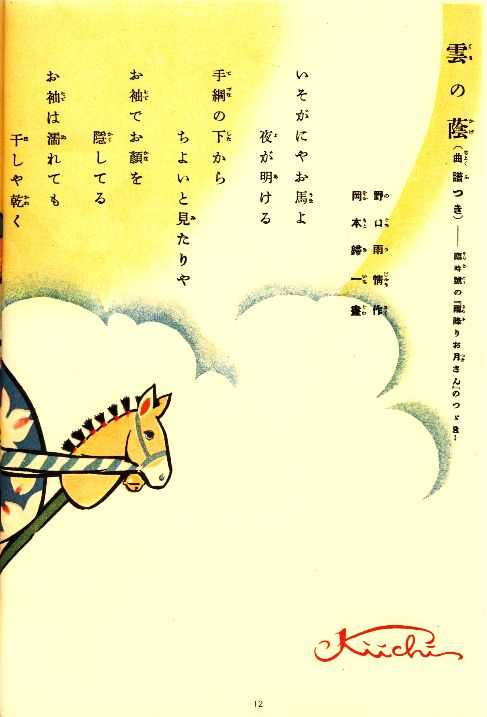 雲の蔭(曲譜つき)――臨時號の『雨降りお月さん』のつゞき――
野口雨情作
岡本歸一畫
いそがにやお馬よ
夜が明ける
手綱の下から
ちよいと見たりや
お袖でお顔を
隠してる
お袖は濡れても
干しや乾く
Kiichi
12